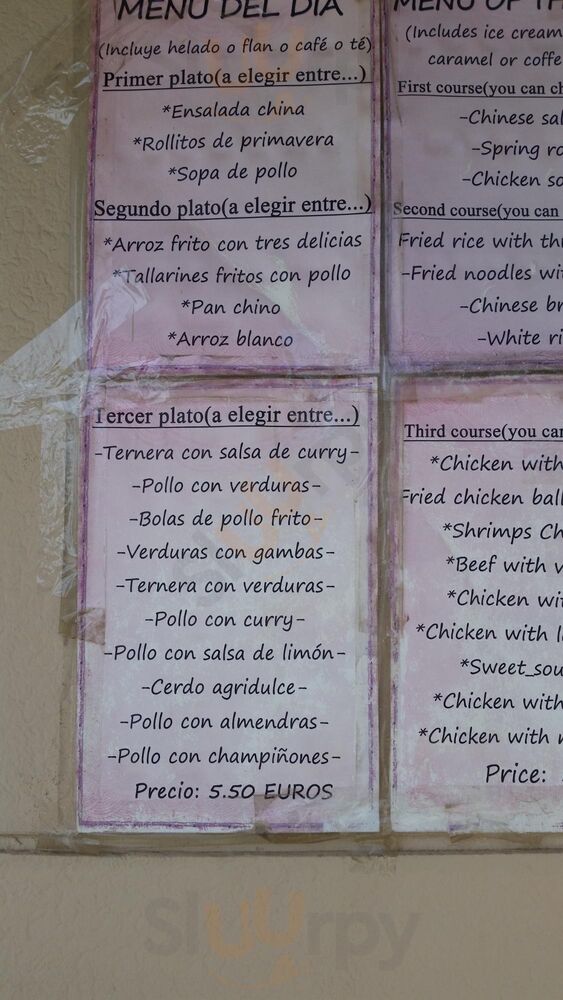 MENU DEL DIA
(Incluye helado o flan o café o té)
Primer plato(a elegir entre...)
*Ensalada china
*Rollitos de primavera
*Sopa de pollo
Segundo plato(a elegir entre...)
*Arroz frito con tres delicias
*Tallarines fritos con pollo
*Pan chino
*Arroz blanco
Tercer plato(a elegir entre...)
-Ternera con salsa de curry-
-Pollo con verduras-
-Bolas de pollo frito-
-Verduras con gambas-
-Ternera con verduras-
-Pollo con curry-
-Pollo con salsa de limón-
-Cerdo agridulce-
-Pollo con almendras-
-Pollo con champiñones-
Precio: 5.50 EUROS
MENU OF
(Includes ice cream
caramel or
First course(you can
-Chinese
-Spring
-Chicken
Second course(you can
Fried rice with
-Fried noodles
-Chinese
-White
Third course(you
*Chicken with
Fried chicken
*Shrimps
*Beef with
*Chicken
*Chicken with
*Chicken with
*Chicken with
Price:
Sluurpy